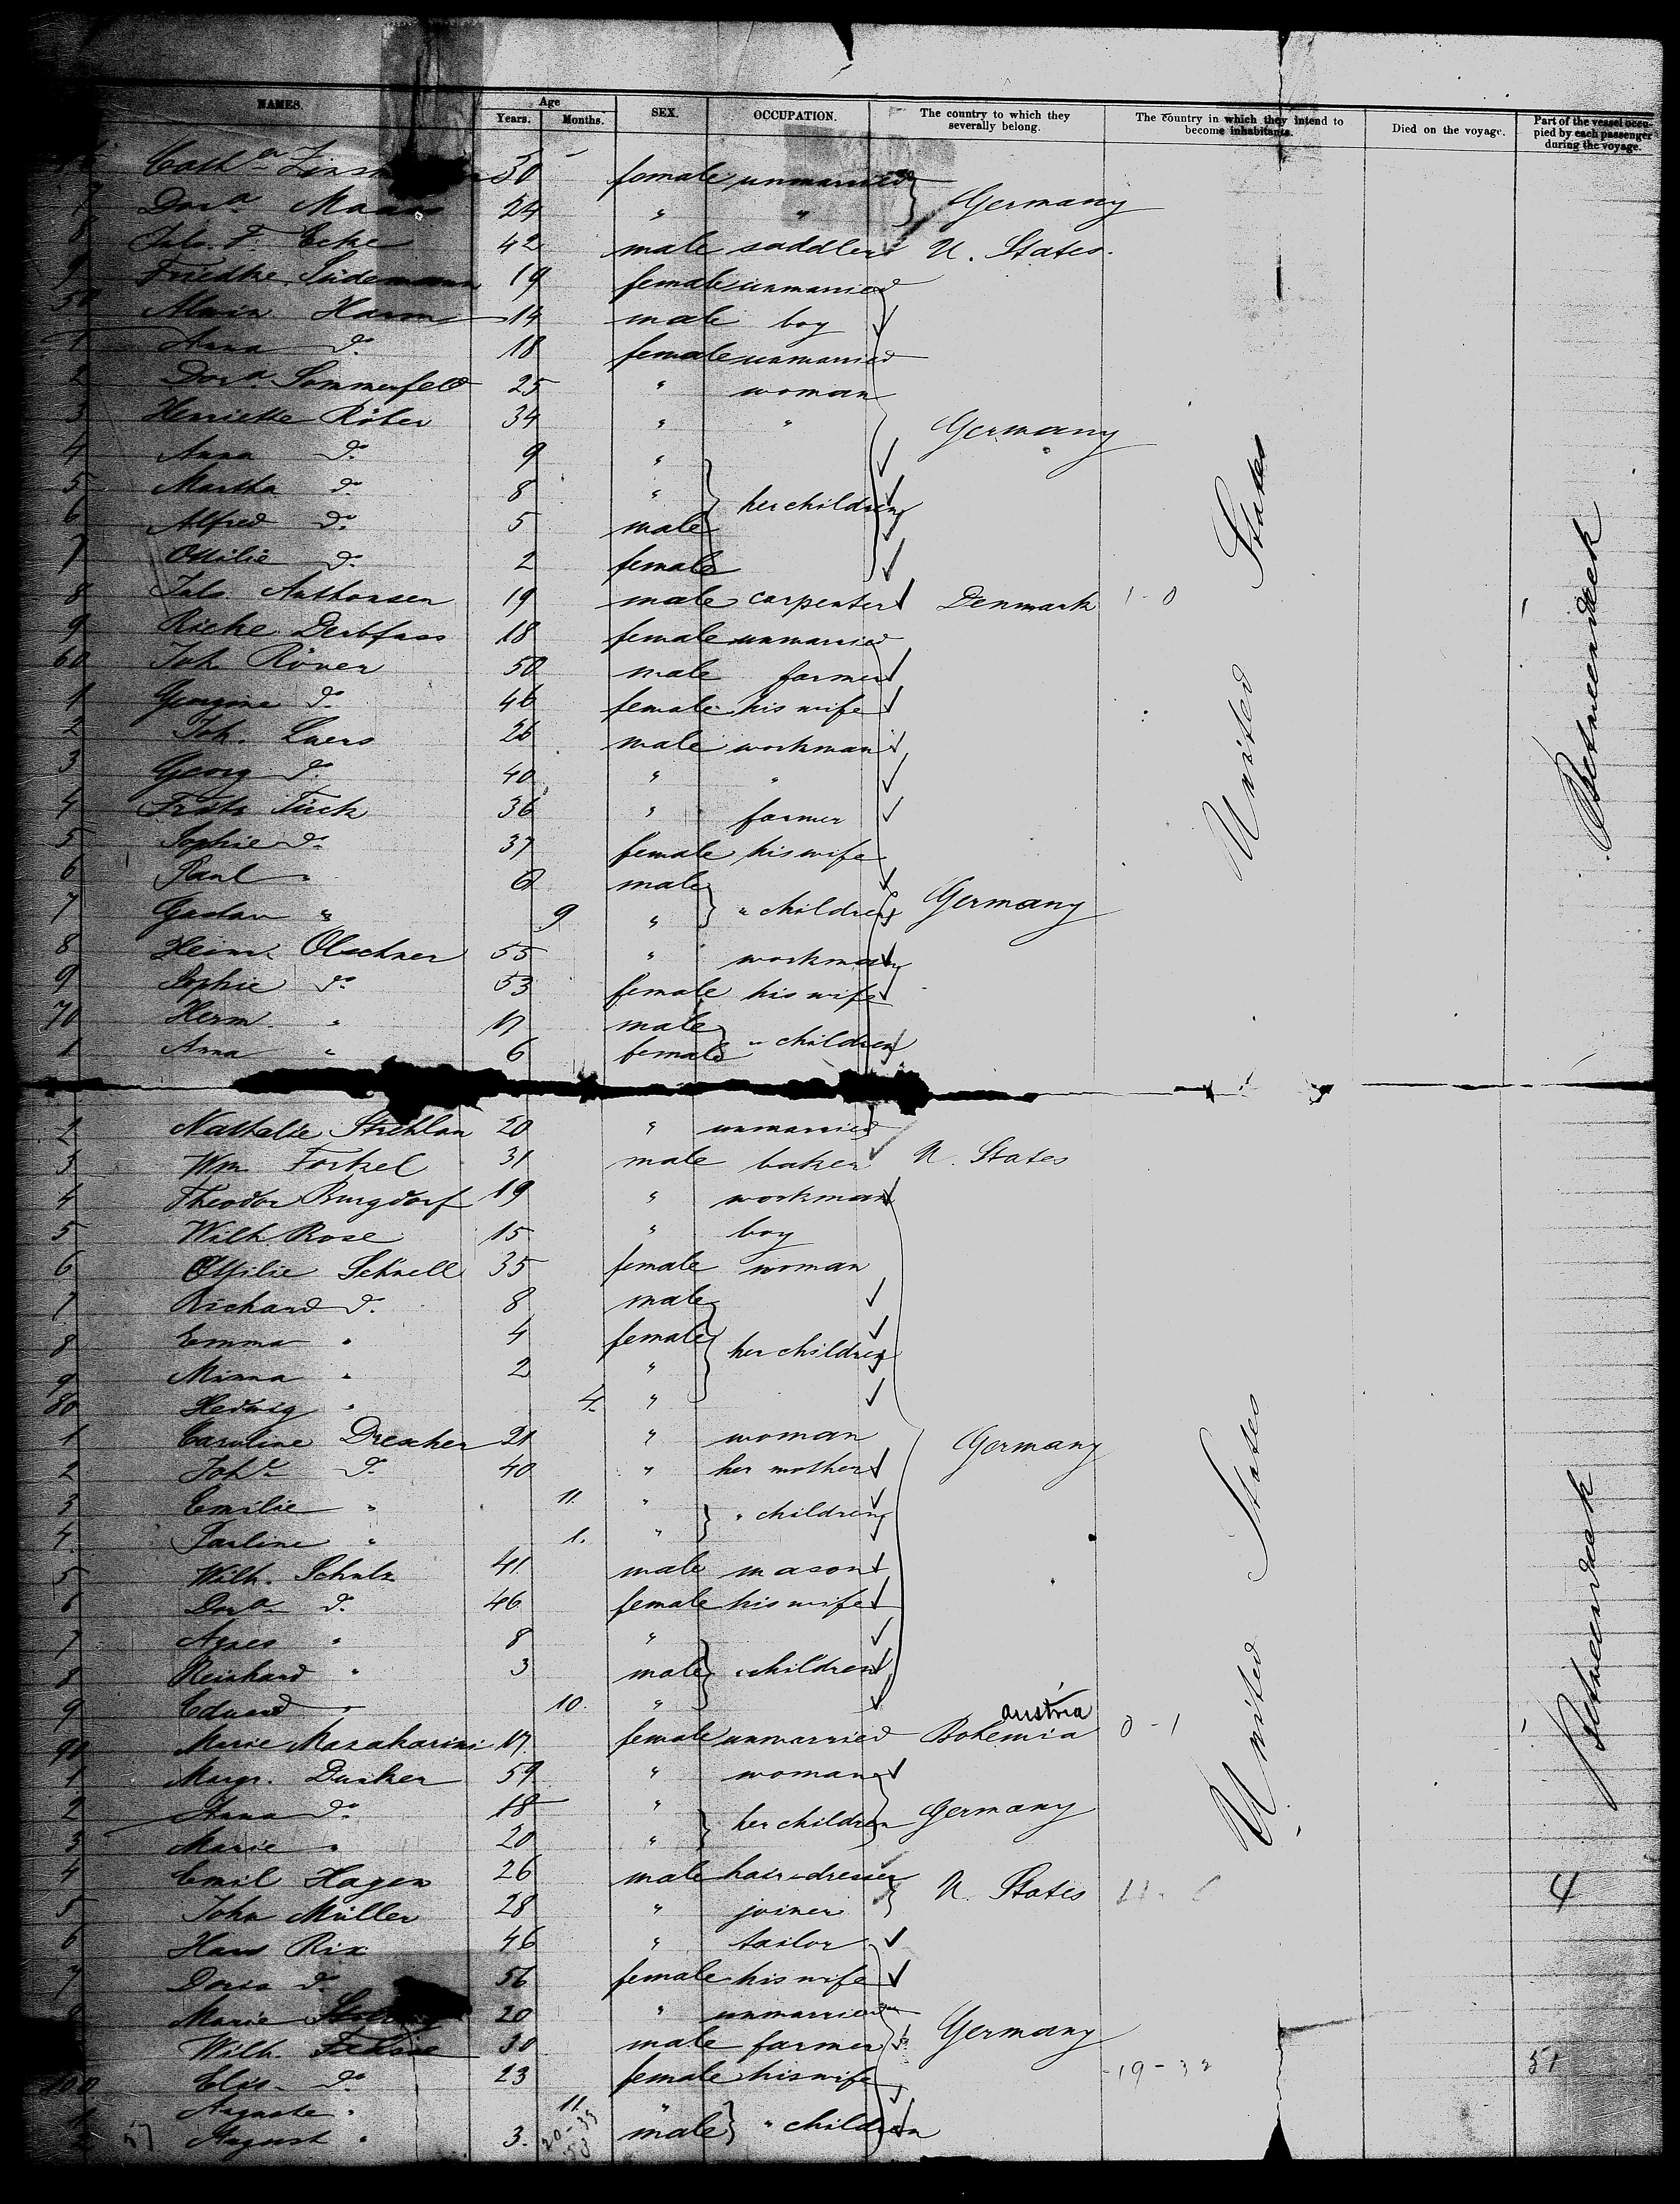 NAMES. Age Years. Months. SEX. OCCUPATION. The country to which they severally belong. The country in which they intend to become inhabitants. Died on the voyage. Part of the vessel occupied by each passenger during the voyage.
Cath. 30 female unmarried
7 Dora Maass 24 " " Germany
8 Eche 42 male saddler U. States.
9 Friedke. Südemann 19 female unmarried
50 Alwin Harm 14 male boy
1 Anna do. 18 female unmarried
2 Dora Sommerfeld 25 " woman
3 Henriette Röber 34 " " Germany
4 Anna do. 9 "
5 Martha do. 8 " her children
6 Alfred do. 5 male
7 Ottilie do. 2 female
8 Anthonsen 19 male carpenter Denmark 1-0
9 Rieke 18 female unmarried
60 Joh. Röver 50 male farmer
1 Georgine do. 46 female his wife
2 Joh. Luers 26 male workman
3 Georg do. 40 " "
4 Tück 36 " farmer
5 Sophie do. 37 female his wife
6 Paul " 6 male
7 Gustav " 9 " " children Germany
8 Heinr. Olschner 55 " workman
9 Sophie do. 53 female his wife
70 Herm. " 17 male
1 Anna " 6 female " children
2 Nathalie Strehlau 20 " unmarried
3 Wm. Forkel 31 male baker U. States
4 Theodor Burgdorf 19 " workman
5 Wilh. Rose 15 " boy
6 Ottilie Schnell 35 female woman
7 Richard do. 8 male
8 Emma " 4 female her children
9 Minna " 2 "
80 Hedwig " 4. "
1 Caroline Drescher 21 " woman Germany
2 Joh. do. 40 " her mother
3 Emilie " 11. " " children
4. Pauline " 1. "
5 Wilh. Schulz 41. male mason
6 Dora do. 46 female his wife
7 Agnes " 8 "
8 Reinhard " 3 male " children
9 Eduard " 10. "
90 Marie 17. female unmarried Bohemia Austria 0-1
1 Margr. Dunker 59 " woman
2 Anna do. 18 " her children Germany
3 Marie " 20 "
4 Emil Hagen 26 male hair-dresser U. States 4
5 John Müller 28 " joiner
6 Hans Rix 46 " tailor
7 Doris do. 56 female his wife
Marie 20 " unmarried Germany
Wilh. 30 male farmer
100 Elis. do. 23 female his wife 51
1 Auguste " 11. "
2 57 August " 3. male " children
United States
United States
Betweendeck
Betweendeck